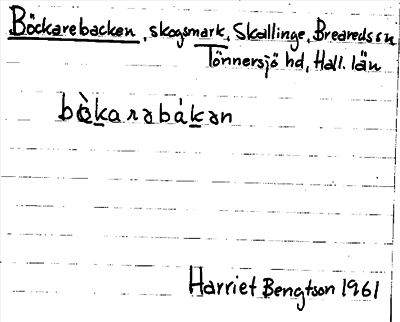 Böckarebacken, skogsmark, Skällinge, Breareds sn
Tönnersjö hd, Hall. län
bø̀karabákan
Harriet Bengtson 1961